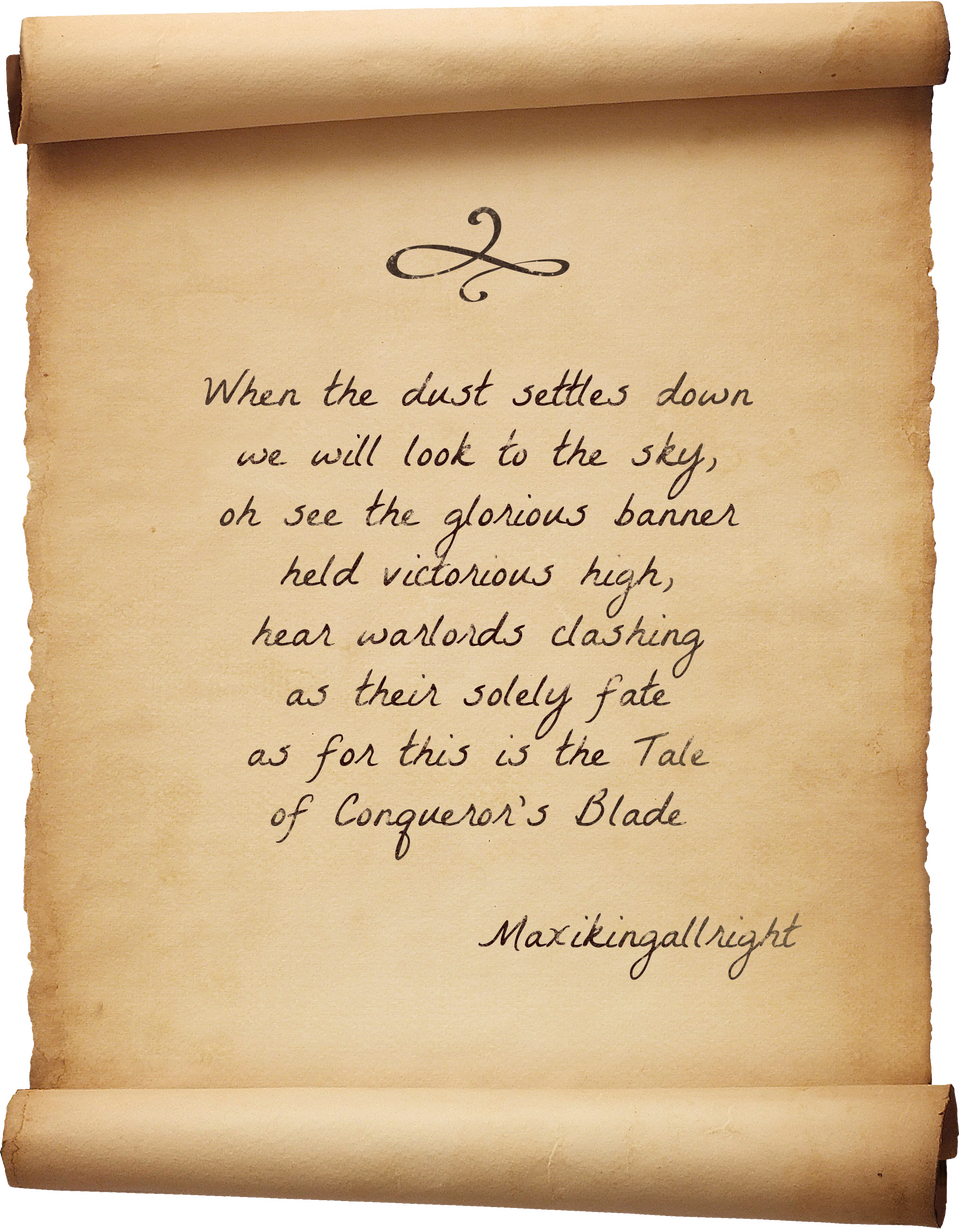 When the dust settles down
we will look to the sky,
oh see the glorious banner
held victorious high,
hear warlords clashing
as their solely fate
as for this is the Tale
of Conqueror's Blade
Maxikingallright